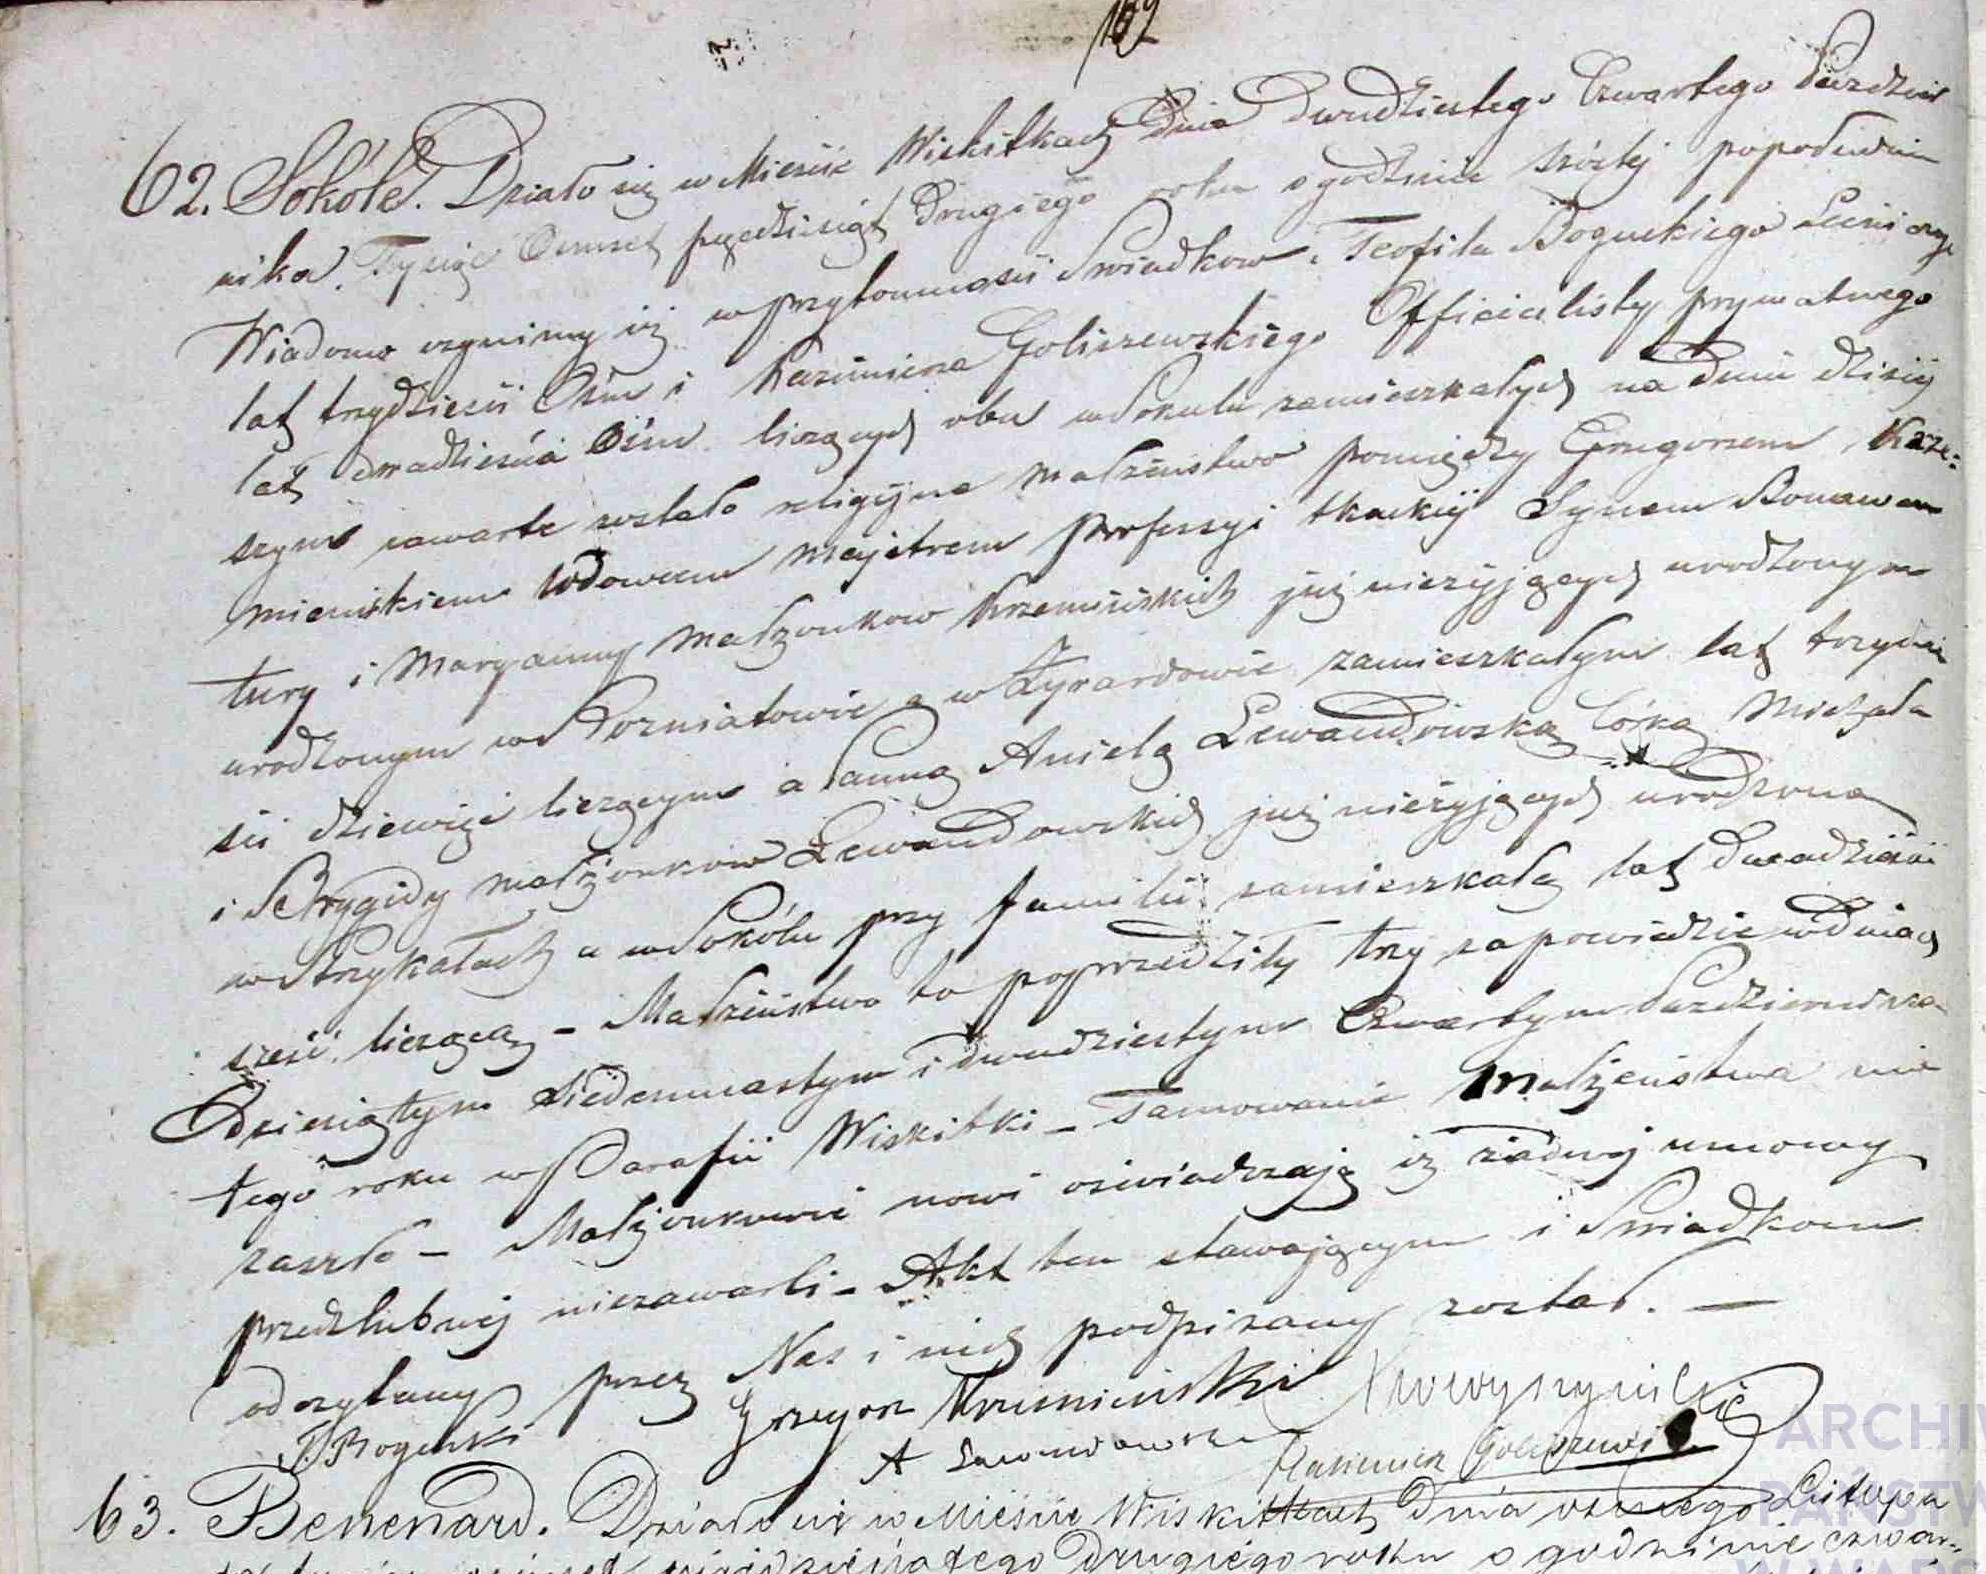 162
62. Sokóle. Działo się w Mieście Wiskitkach Dnia dwudziestego Czwartego Paździer
nika Tysiąc Ośmset pięćdziesiąt Drugiego roku o godzinie szóstej popołudniu
Wiadomo czynimy iż w przytomności Świadkow, Teofila Boguckiego Leśniczego
lat trzydzieści Ośm i Kazimierza Goliszewskiego Officialisty prywatnego
lat dwadzieścia Ośm liczących obu w Sokulu zamieszkałych na dniu dzisiej
szym zawarte zostało religijne małżeństwo pomiędzy Grzegorzem Krze=
mieńskiem Wdowcem majstrem professyi tkackiej Synem Bonawen
tury i Maryanny małżonkow Krzemińskich już nieżyjących urodzonym
urodzonym w Pozniatowie a w Żyrardowie zamieszkałym lat trzydzie
ści dziewięć liczącym a Panną Anielą Lewandowską Córką Michała
i Brygidy małżonków Lewandowskich już nieżyjących urodzoną
w Strzykałach a w Sokólu przy familii zamieszkałą lat dwadzieścia
sześć liczącą – Małżeństwo to poprzedziły trzy zapowiedzie w dniach
Dziesiątym Siedemnastym i dwudziestym Czwartym Października
tego roku w Parafii Wiskitki – Tamowanie Małżeństwa nie
zaszło – Małżonkowie nowi oświadczają iż żadnej umowy
przedślubnej niezawarli – Akt ten stawającym i Świadkom
odczytany przez Nas i nich podpisany został. —
Grzegorz Krzemieński
T. Bogucki
A Lewandowska
Kazimierz Goliszewski
63. Benenard. Działo się w Mieście Wiskitkach Dnia osmego Listopa
drugiego roku o godzinie czwar=
ARCHIW
PAŃSTW
W WARS